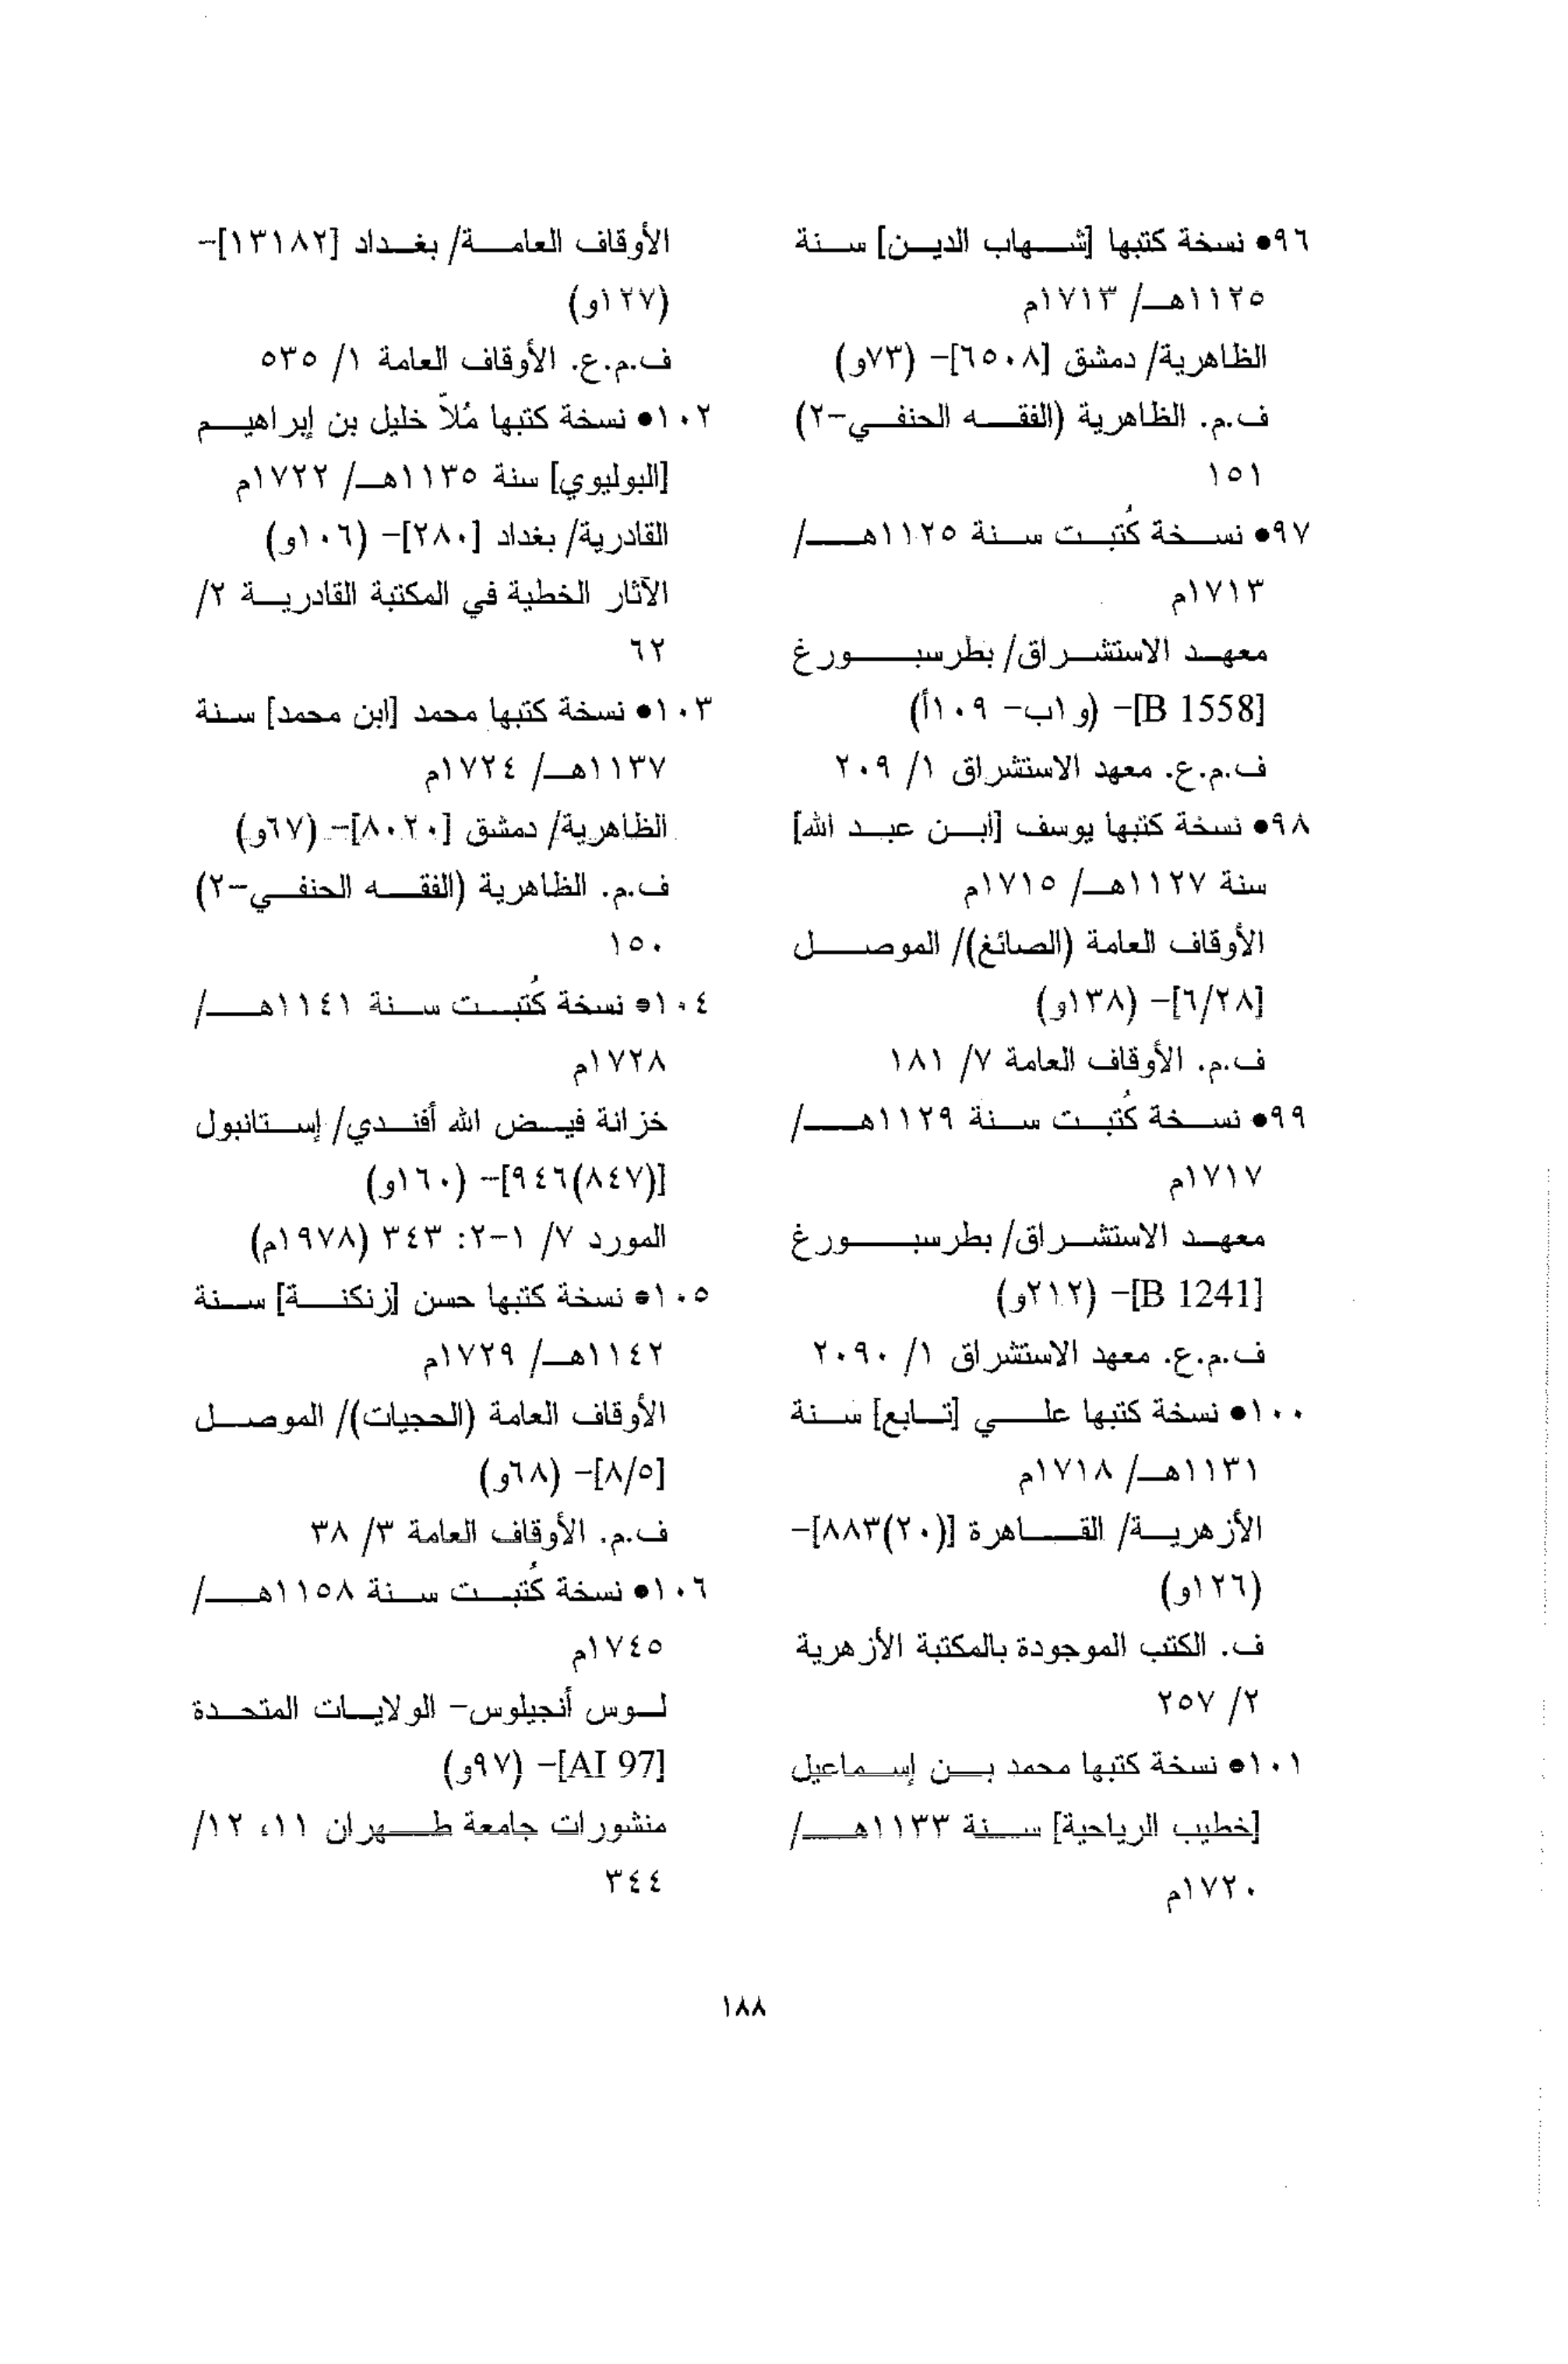 ٩٦● نسخة كتبها [شهاب الدين] سنة
١١٢٥هـ/ ١٧١٣م
الظاهرية/ دمشق [٦٥٠٨]- (٧٣و)
ف.م. الظاهرية (الفقه الحنفي-٢)
١٥١
٩٧● نسخة كُتبت سنة ١١٢٥هـ/
١٧١٣م
معهد الاستشراق/ بطرسبورغ
[B 1558]- (و ١ب- ١٠٩أ)
ف.م.ع. معهد الاستشراق ١/ ٢٠٩
٩٨● نسخة كتبها يوسف [ابن عبد الله]
سنة ١١٢٧هـ/ ١٧١٥م
الأوقاف العامة (الصائغ)/ الموصل
[٦/٢٨]- (١٣٨و)
ف.م. الأوقاف العامة ٧/ ١٨١
٩٩● نسخة كُتبت سنة ١١٢٩هـ/
١٧١٧م
معهد الاستشراق/ بطرسبورغ
[B 1241]- (٢١٢و)
ف.م.ع. معهد الاستشراق ١/ ٢٠٩٠
١٠٠● نسخة كتبها علي [تابع] سنة
١١٣١هـ/ ١٧١٨م
الأزهرية/ القاهرة [(٢٠)٨٨٣]-
(١٢٦و)
ف. الكتب الموجودة بالمكتبة الأزهرية
٢/ ٢٥٧
١٠١● نسخة كتبها محمد بن إسماعيل
[خطيب الرياحية] سنة ١١٣٣هـ/
١٧٢٠م
الأوقاف العامة/ بغداد [١٣١٨٢]-
(١٢٧و)
ف.م.ع. الأوقاف العامة ١/ ٥٣٥
١٠٢● نسخة كتبها مُلاّ خليل بن إبراهيم
[البوليوي] سنة ١١٣٥هـ/ ١٧٢٢م
القادرية/ بغداد [٢٨٠]- (١٠٦و)
الآثار الخطية في المكتبة القادرية ٢/
٦٢
١٠٣● نسخة كتبها محمد [ابن محمد] سنة
١١٣٧هـ/ ١٧٢٤م
الظاهرية/ دمشق [٨٠٢٠]- (٦٧و)
ف.م. الظاهرية (الفقه الحنفي-٢)
١٥٠
١٠٤● نسخة كُتبت سنة ١١٤١هـ/
١٧٢٨م
خزانة فيض الله أفندي/ إستانبول
[(٨٤٧)٩٤٦]- (١٦٠و)
المورد ٧/ ١-٢: ٣٤٣ (١٩٧٨م)
١٠٥● نسخة كتبها حسن [زنكنة] سنة
١١٤٢هـ/ ١٧٢٩م
الأوقاف العامة (الحجيات)/ الموصل
[٨/٥]- (٦٨و)
ف.م. الأوقاف العامة ٣/ ٣٨
١٠٦● نسخة كُتبت سنة ١١٥٨هـ/
١٧٤٥م
لوس أنجيلوس- الولايات المتحدة
[AI 97]- (٩٧و)
منشورات جامعة طهران ١١، ١٢/
٣٤٤
١٨٨